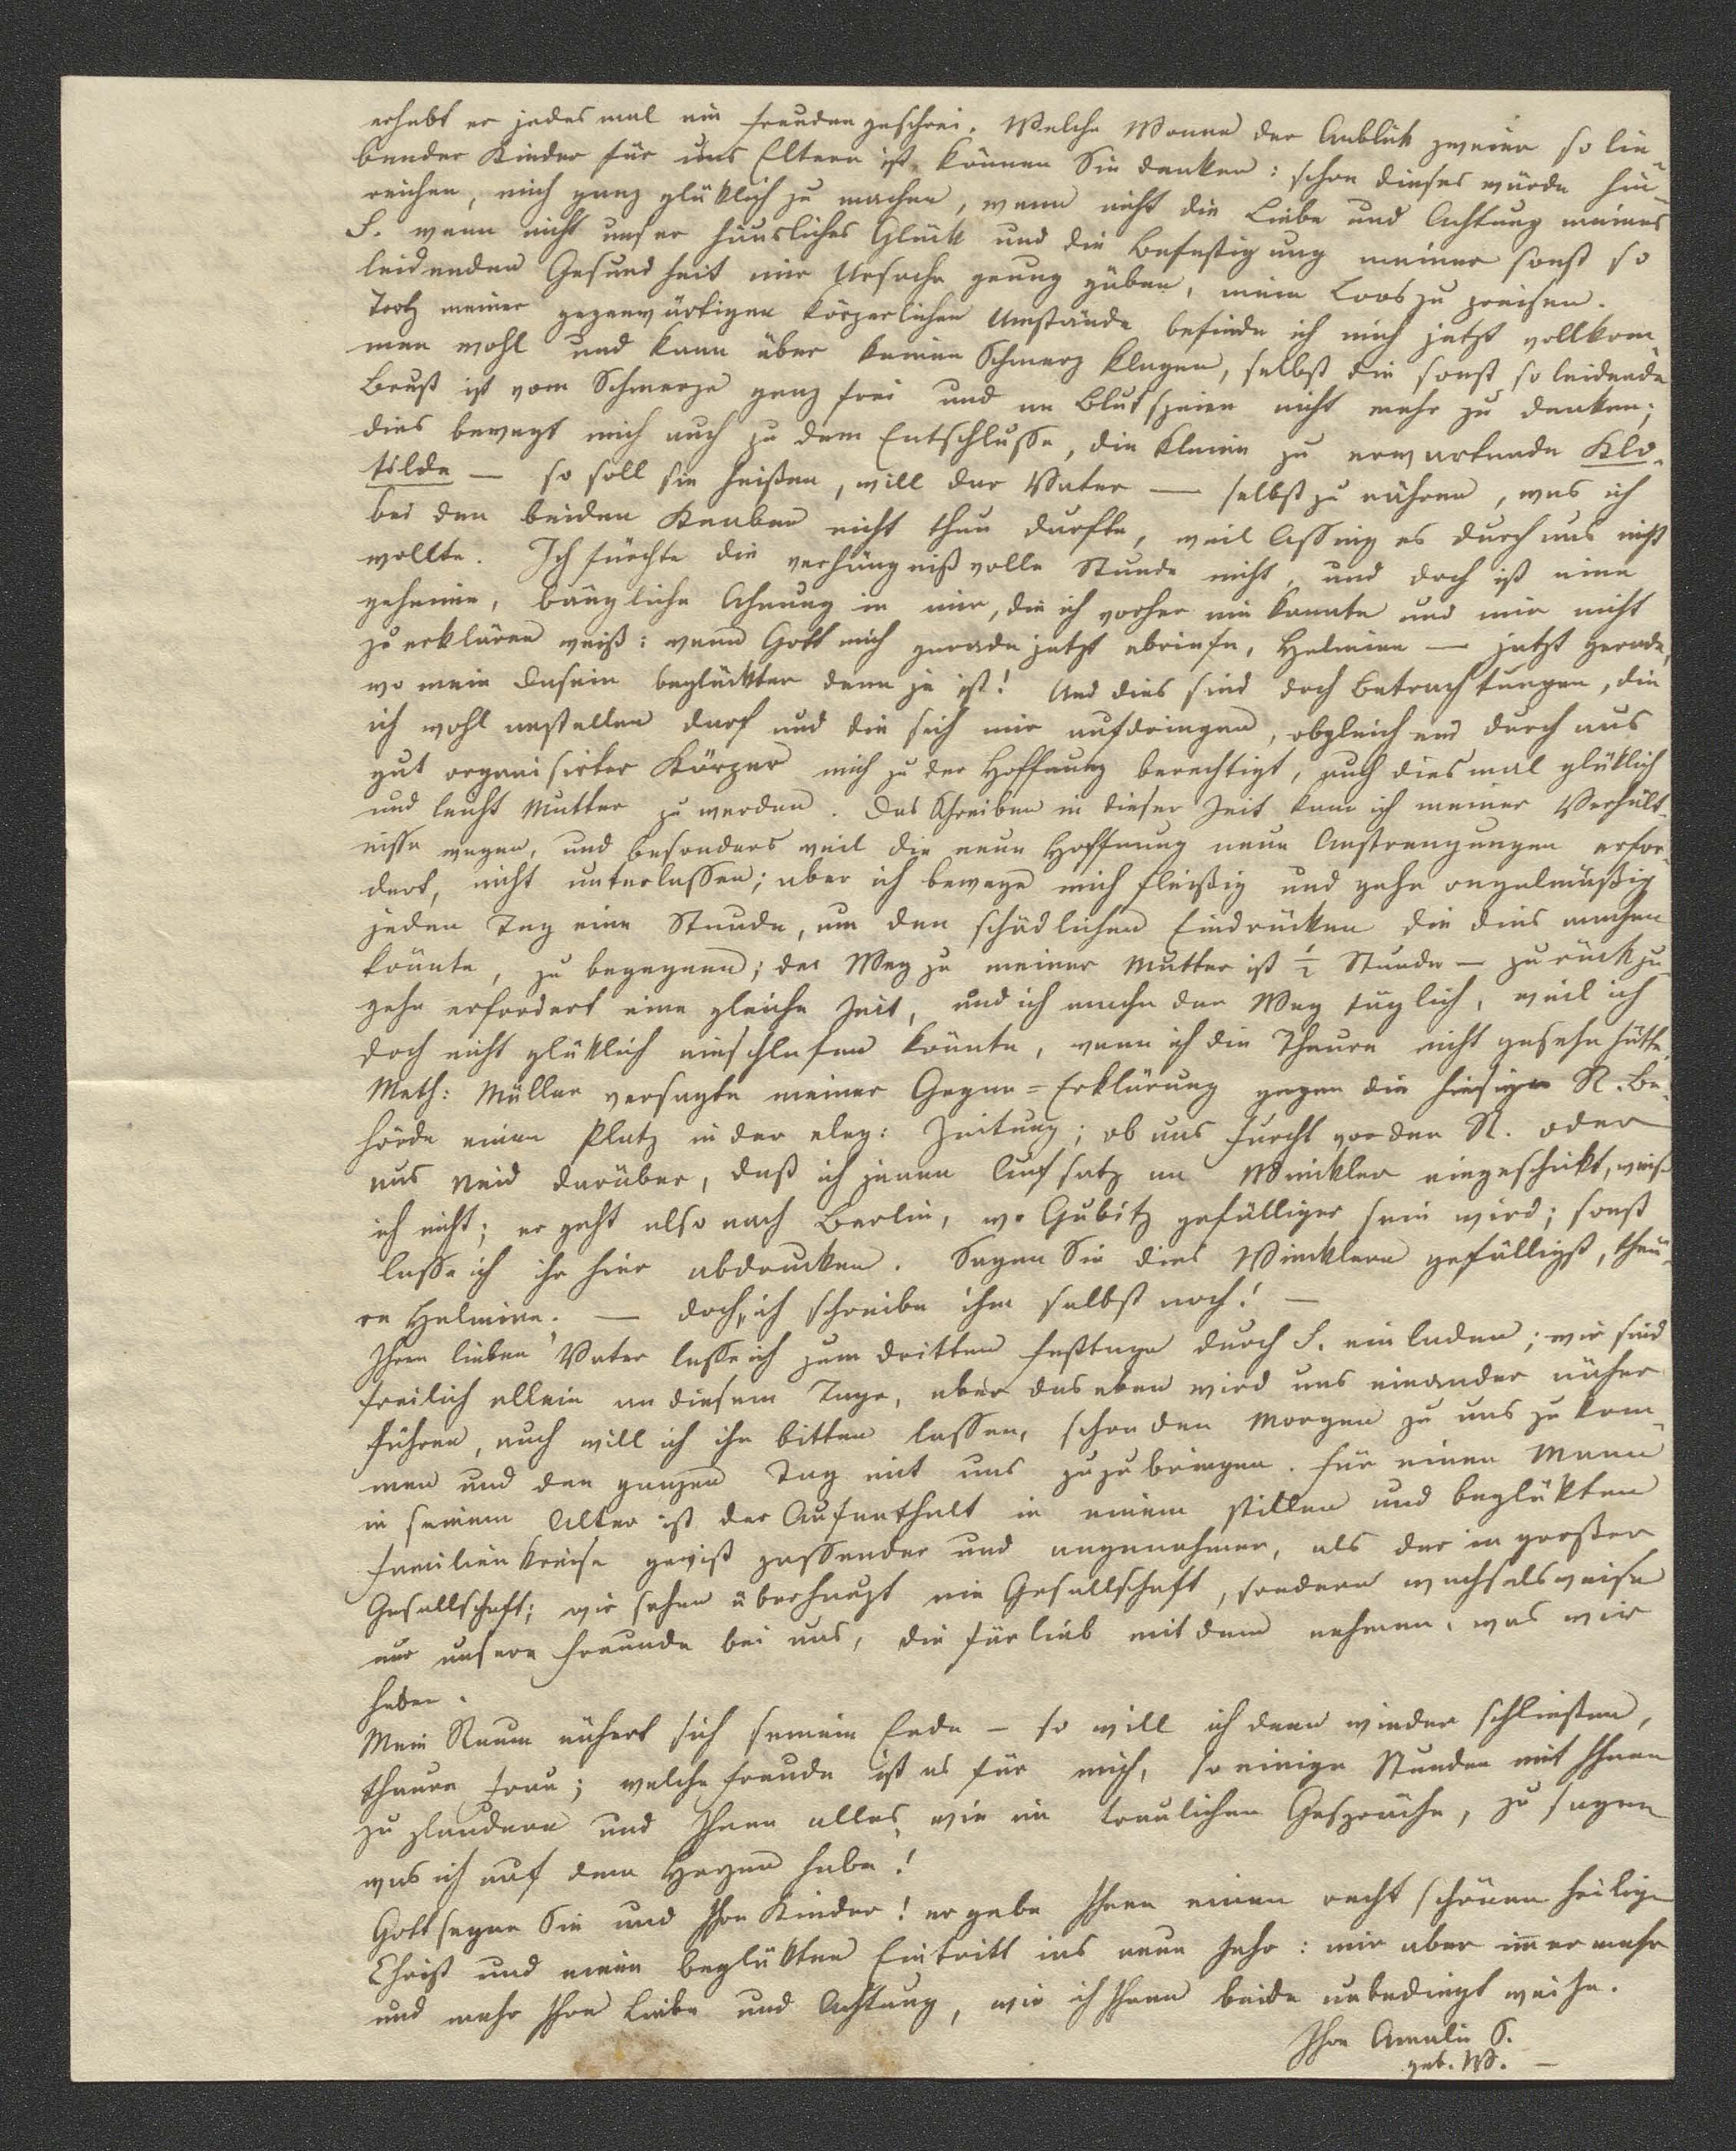 erhebt er jedesmal ein Freudengeschrei. Welche Wonne der Anblick zweier so lie-
bender Kinder für uns Eltern ist, können Sie denken: schon dieses würde hin-
reichen, mich ganz glüklich zu machen, wenn nicht die Liebe und Achtung meines
S. wenn nicht unser häusliches Glück und die Befestigung meiner sonst so
leidenden Gesundheit mir Ursache genug gäben, mein Loos zu preisen.
Trotz meiner gegenwärtigen körperlichen Umstände befinde ich mich jetzt vollkom-
men wohl und kann über keinen Schmerz klagen, selbst die sonst so leidende
Brust ist vom Schmerze ganz frei und an Blutspeien nicht mehr zu denken;
dies bewegt mich auch zu dem Entschlusse, die kleine zu erwartende Klo-
tilde — so soll sie heißen, will der Vater — selbst zu nähren, was ich
bei den beiden Knaben nicht thun durfte, weil Assing es durchaus nicht
wollte. Ich fürchte die verhängnißvolle Stunde nicht, und doch ist eine
geheime, bängliche Ahnung in mir, die ich vorher nie kannte und mir nicht
zu erklären weiß: wenn Gott mich gerade jetzt abriefe, Helmina — jetzt gerade,
wo mein Dasein beglückter denn je ist! Und dies sind doch Betrachtungen, die
ich wohl anstellen darf und die sich mir aufdringen, obgleich ein durchaus
gut organisirter Körper mich zu der Hoffnung berechtigt, auch diesmal glüklich
und leicht Mutter zu werden. Das Schreiben in dieser Zeit kann ich meiner Verhält-
nisse wegen, und besonders weil die neue Hoffnung neue Anstrengungen erfor-
dert, nicht unterlassen; aber ich bewege mich fleißig und gehe regelmäßig
jeden Tag eine Stunde, um den schädlichen Eindrücken die dies machen
könnte, zu begegnen; der Weg zu meiner Mutter ist ½ Stunde — zurückzu-
gehn erfordert eine gleiche Zeit, und ich mache den Weg täglich, weil ich
doch nicht glüklich einschlafen könnte, wenn ich die Theure nicht gesehn hätte.
Meth: Müller versagte meiner Gegen-Erklärung gegen die hiesige R. Be-
hörde einen Platz in der eleg: Zeitung; ob aus Furcht vor den R. oder
aus Neid darüber, daß ich jenen Aufsatz an Winkler eingeschickt, weiß
ich nicht; er geht also nach Berlin, wo Gubitz gefälliger sein wird; sonst
lasse ich ihn hier abdrucken. Sagen Sie dies Wincklern gefälligst, theu-
re Helmina. — doch, ich schreibe ihm selbst noch! —
Ihren lieben Vater lasse ich zum dritten Festtage durch S. einladen; wir sind
freilich allein an diesem Tage, aber das eben wird uns einander näher
führen, auch will ich ihn bitten lassen, schon den Morgen zu uns zu kom-
men und den ganzen Tag mit uns zuzubringen. Für einen Mann
in seinem Alter ist der Aufenthalt in einem stillen und beglükten
Familienkreise gewiß passender und angenehmer, als der in großer
Gesellschaft; wir sehen überhaupt nie Gesellschaft, sondern wechselsweise
nur unsere Freunde bei uns, die fürlieb mit dem nehmen, was wir
haben.
Mein Raum nähert sich seinem Ende — so will ich denn wieder schließen,
theure Frau; welche Freude ist es für mich, so einige Stunden mit Ihnen
zu plaudern und Ihnen alles, wie im traulichen Gespräche, zu sagen
was ich auf dem Herzen habe!
Gott segne Sie und Ihre Kinder! er gebe Ihnen einen recht schönen heilige
Christ und einen beglükten Eintritt ins neue Jahr: mir aber immer mehr
und mehr Ihre Liebe und Achtung, wie ich Ihnen beide unbedingt weihe.
Ihre Amalie S.
geb. W. —